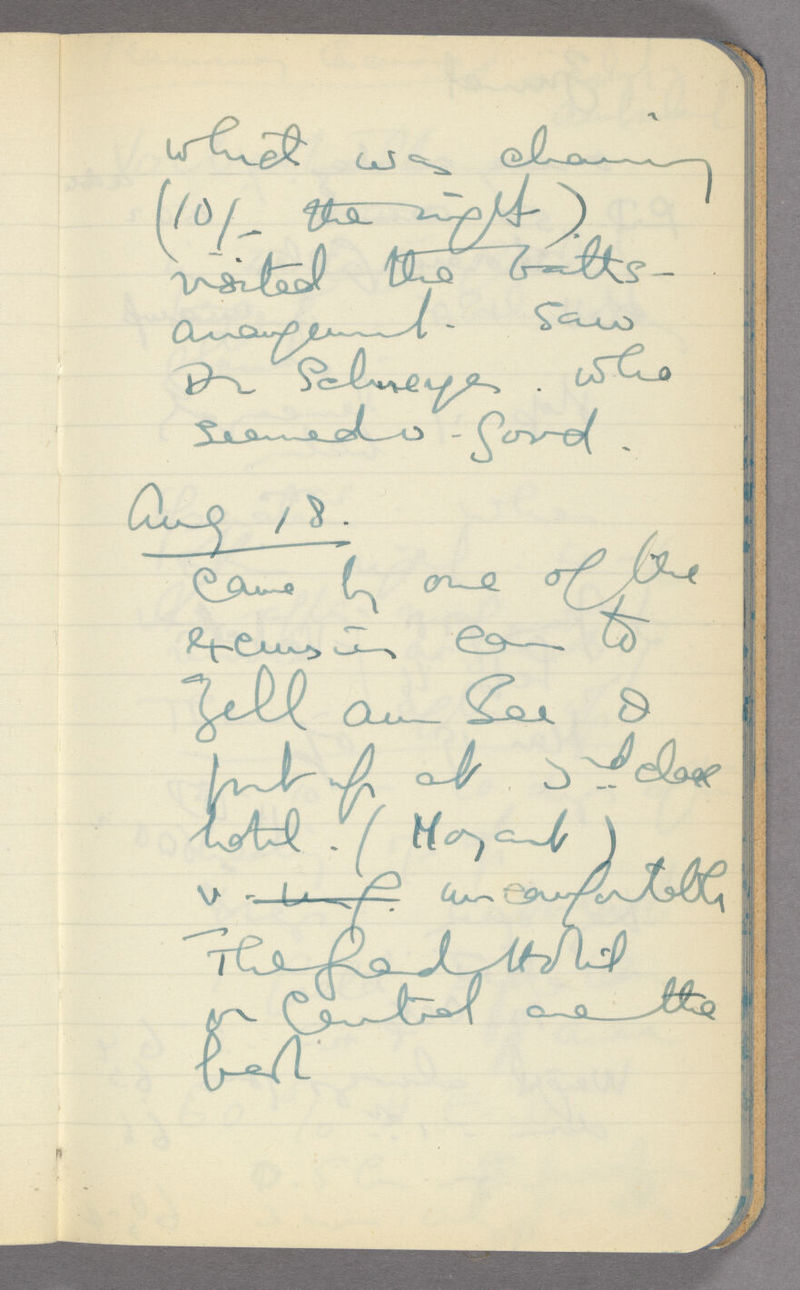 which was charming
(10/- the night)
visited the baths-
arrangement. Saw
Dr who
seemed v. good.
Aug 18.
Came by one of the
excursion cars to
Zell am See &
put up at 3rd class
hotel. (Mozart)
v. uncomfortable
The Grand Hotel
or Central are the
best